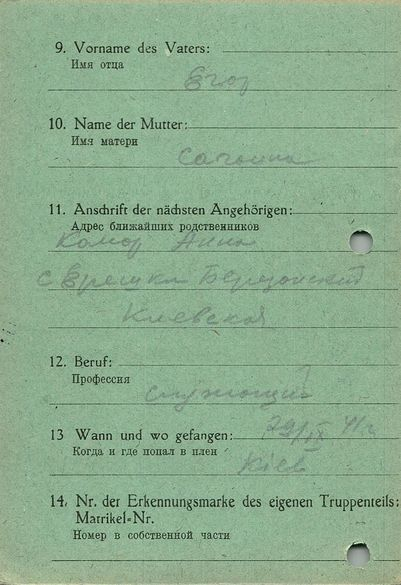 9. Vorname des Vaters:
Имя отца
Егор
10. Name der Mutter:
Имя матери
11. Anschrift der nächsten Angehörigen:
Адрес ближайших родственников
Комор Анна
с
Киевская
12. Beruf:
Профессия
служащий
13 Wann und wo gefangen: 29/IX 41г
Когда и где попал в плен
Kiev
14. Nr. der Erkennungsmarke des eigenen Truppenteils:
Matrikel-Nr.
Номер в собственной части